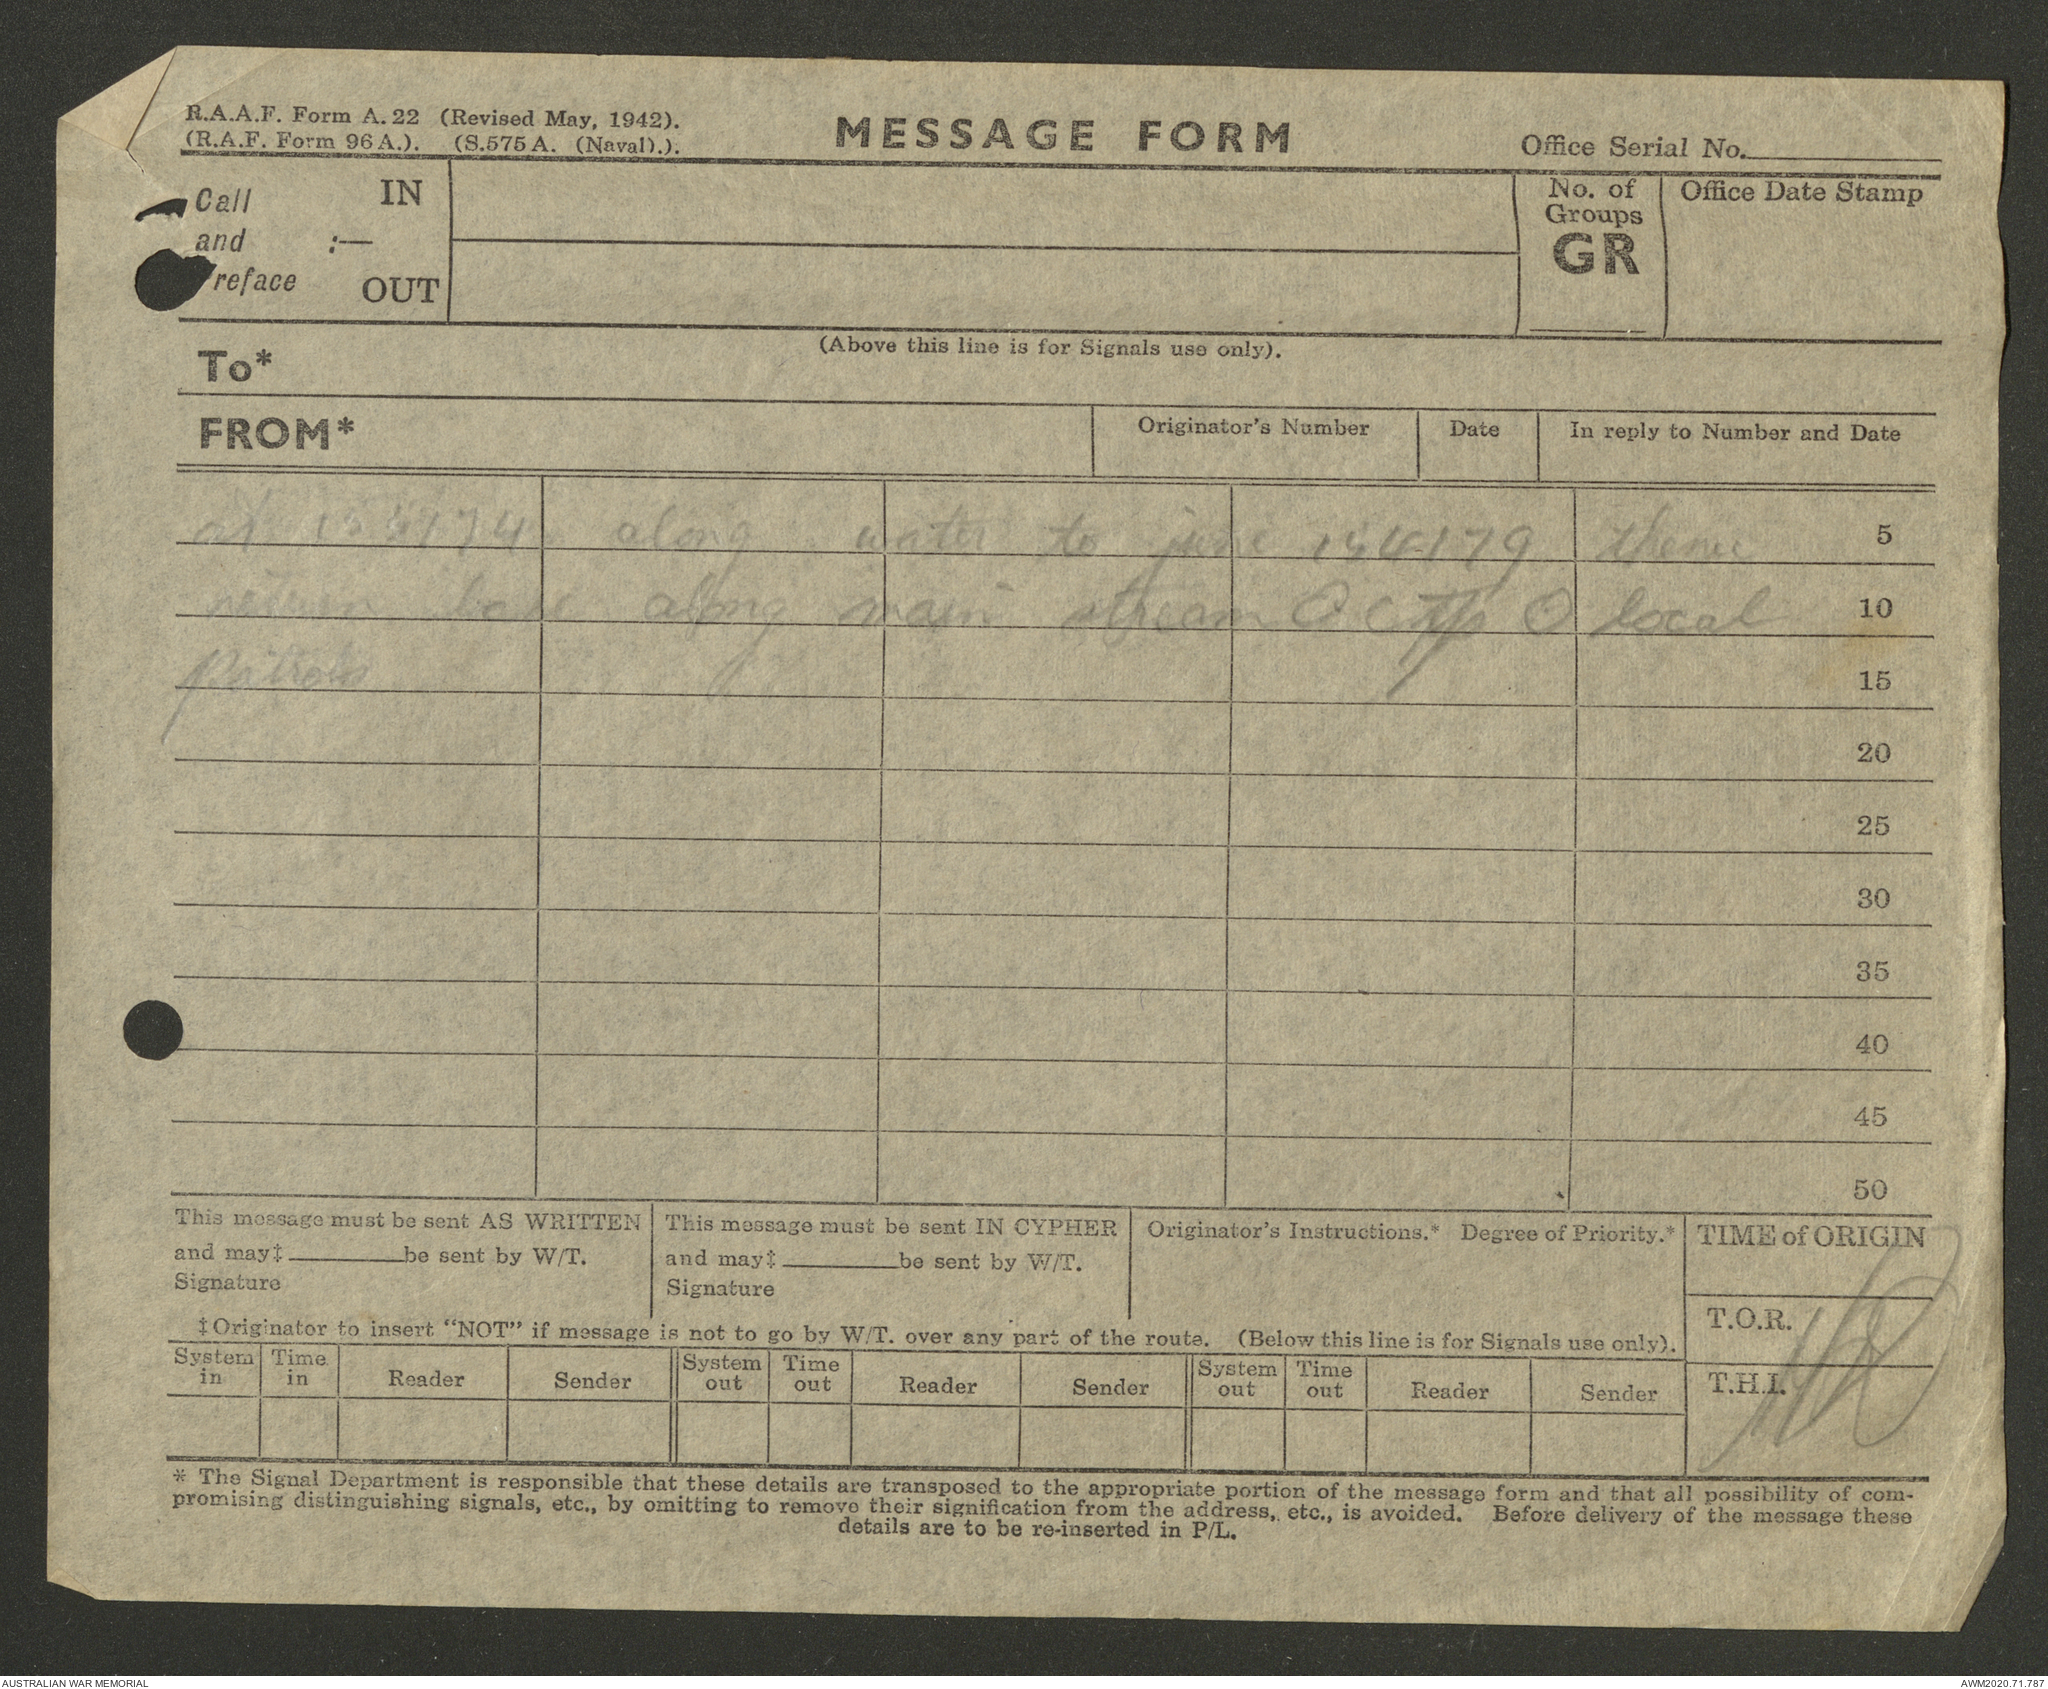 R.A.A.F. Form A. 22 (Revised May, 1942).
(R.A.F. Form 96 A.). (S.575 A. (Naval).).
MESSAGE FORM
Office Serial No.
Call and reface :— IN OUT
No. of Groups GR
Office Date Stamp
(Above this line is for Signals use only).
To*
FROM*
Originator's Number
Date
In reply to Number and Date
along water to junc 154179 thence 5
return base along main stream O C O local 10
patrols 15
20
25
30
35
40
45
50
This message must be sent AS WRITTEN
and may‡ be sent by W/T.
Signature
This message must be sent IN CYPHER
and may‡ be sent by W/T.
Signature
Originator's Instructions.* Degree of Priority.*
TIME of ORIGIN
T.O.R.
T.H.I.
‡Originator to insert “NOT” if message is not to go by W/T. over any part of the route. (Below this line is for Signals use only).
System in Time in Reader Sender System out Time out Reader Sender System out Time out Reader Sender
* The Signal Department is responsible that these details are transposed to the appropriate portion of the message form and that all possibility of com-
promising distinguishing signals, etc., by omitting to remove their signification from the address, etc., is avoided. Before delivery of the message these
details are to be re-inserted in P/L.
AUSTRALIAN WAR MEMORIAL
AWM2020.71.787